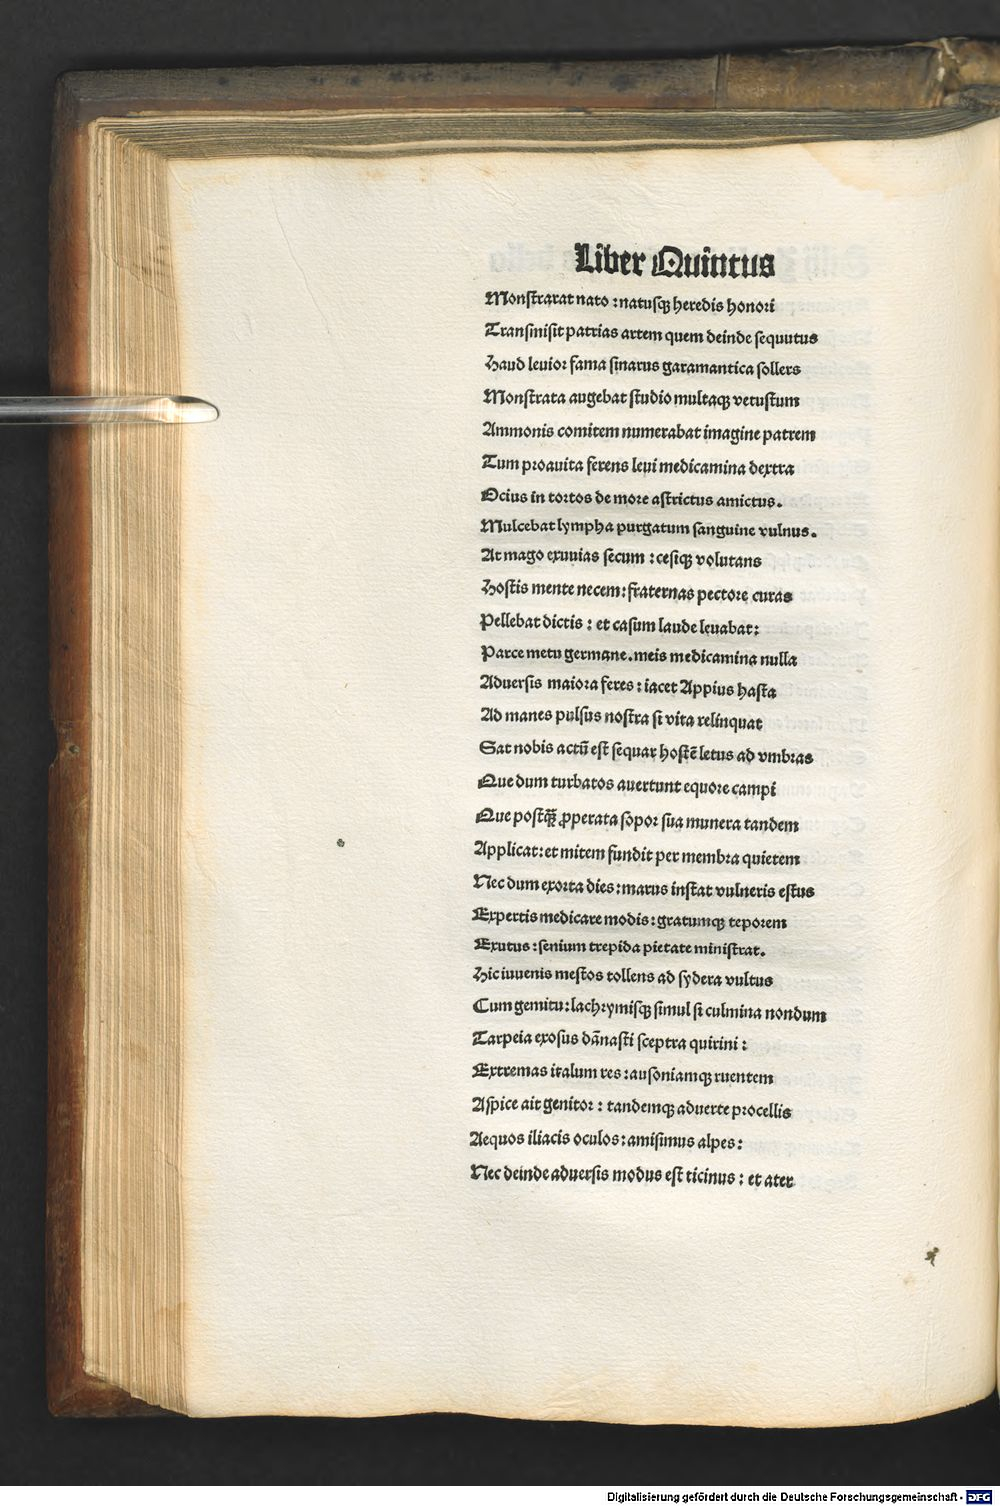 Liber Quintus
Monstrarat nato : natusqꝫ heredis honori
Transmisit patrias artem quem deinde sequutus
Haud leuior fama sinarus garamantica sollers
Monstrata augebat studio multaqꝫ vetustum
Ammonis comitem numerabat imagine patrem
Tum proauita ferens leui medicamina dextra
Ocius in tortos de more astrictus amictus.
Mulcebat lympha purgatum sanguine vulnus.
At mago exuuias secum : cesiqꝫ volutans
Hostis mente necem : fraternas pectore curas
Pellebat dictis : et casum laude leuabat :
Parce metu germane. meis medicamina nulla
Aduersis maiora feres : iacet Appius hasta
Ad manes pulsus nostra si vita relinquat
Sat nobis actũ est sequar hostẽ letus ad vmbras
Que dum turbatos auertunt equore campi
Que postq̃ꝫ ꝓperata sopor sua munera tandem
Applicat : et mitem fundit per membra quietem
Nec dum exorta dies : marus instat vulneris estus
Expertis medicare modis : gratumqꝫ teporem
Exutus : senium trepida pietate ministrat.
Hic iuuenis mestos tollens ad sydera vultus
Cum gemitu : lachrymisqꝫ simul si culmina nondum
Tarpeia exosus dãnasti sceptra quirini :
Extremas italum res : ausoniamqꝫ ruentem
Aspice ait genitor : tandemqꝫ aduerte procellis
Aequos iliacis oculos : amisimus alpes :
Nec deinde aduersis modus est ticinus : et ater
Digitalisierung gefördert durch die Deutsche Forschungsgemeinschaft - DFG